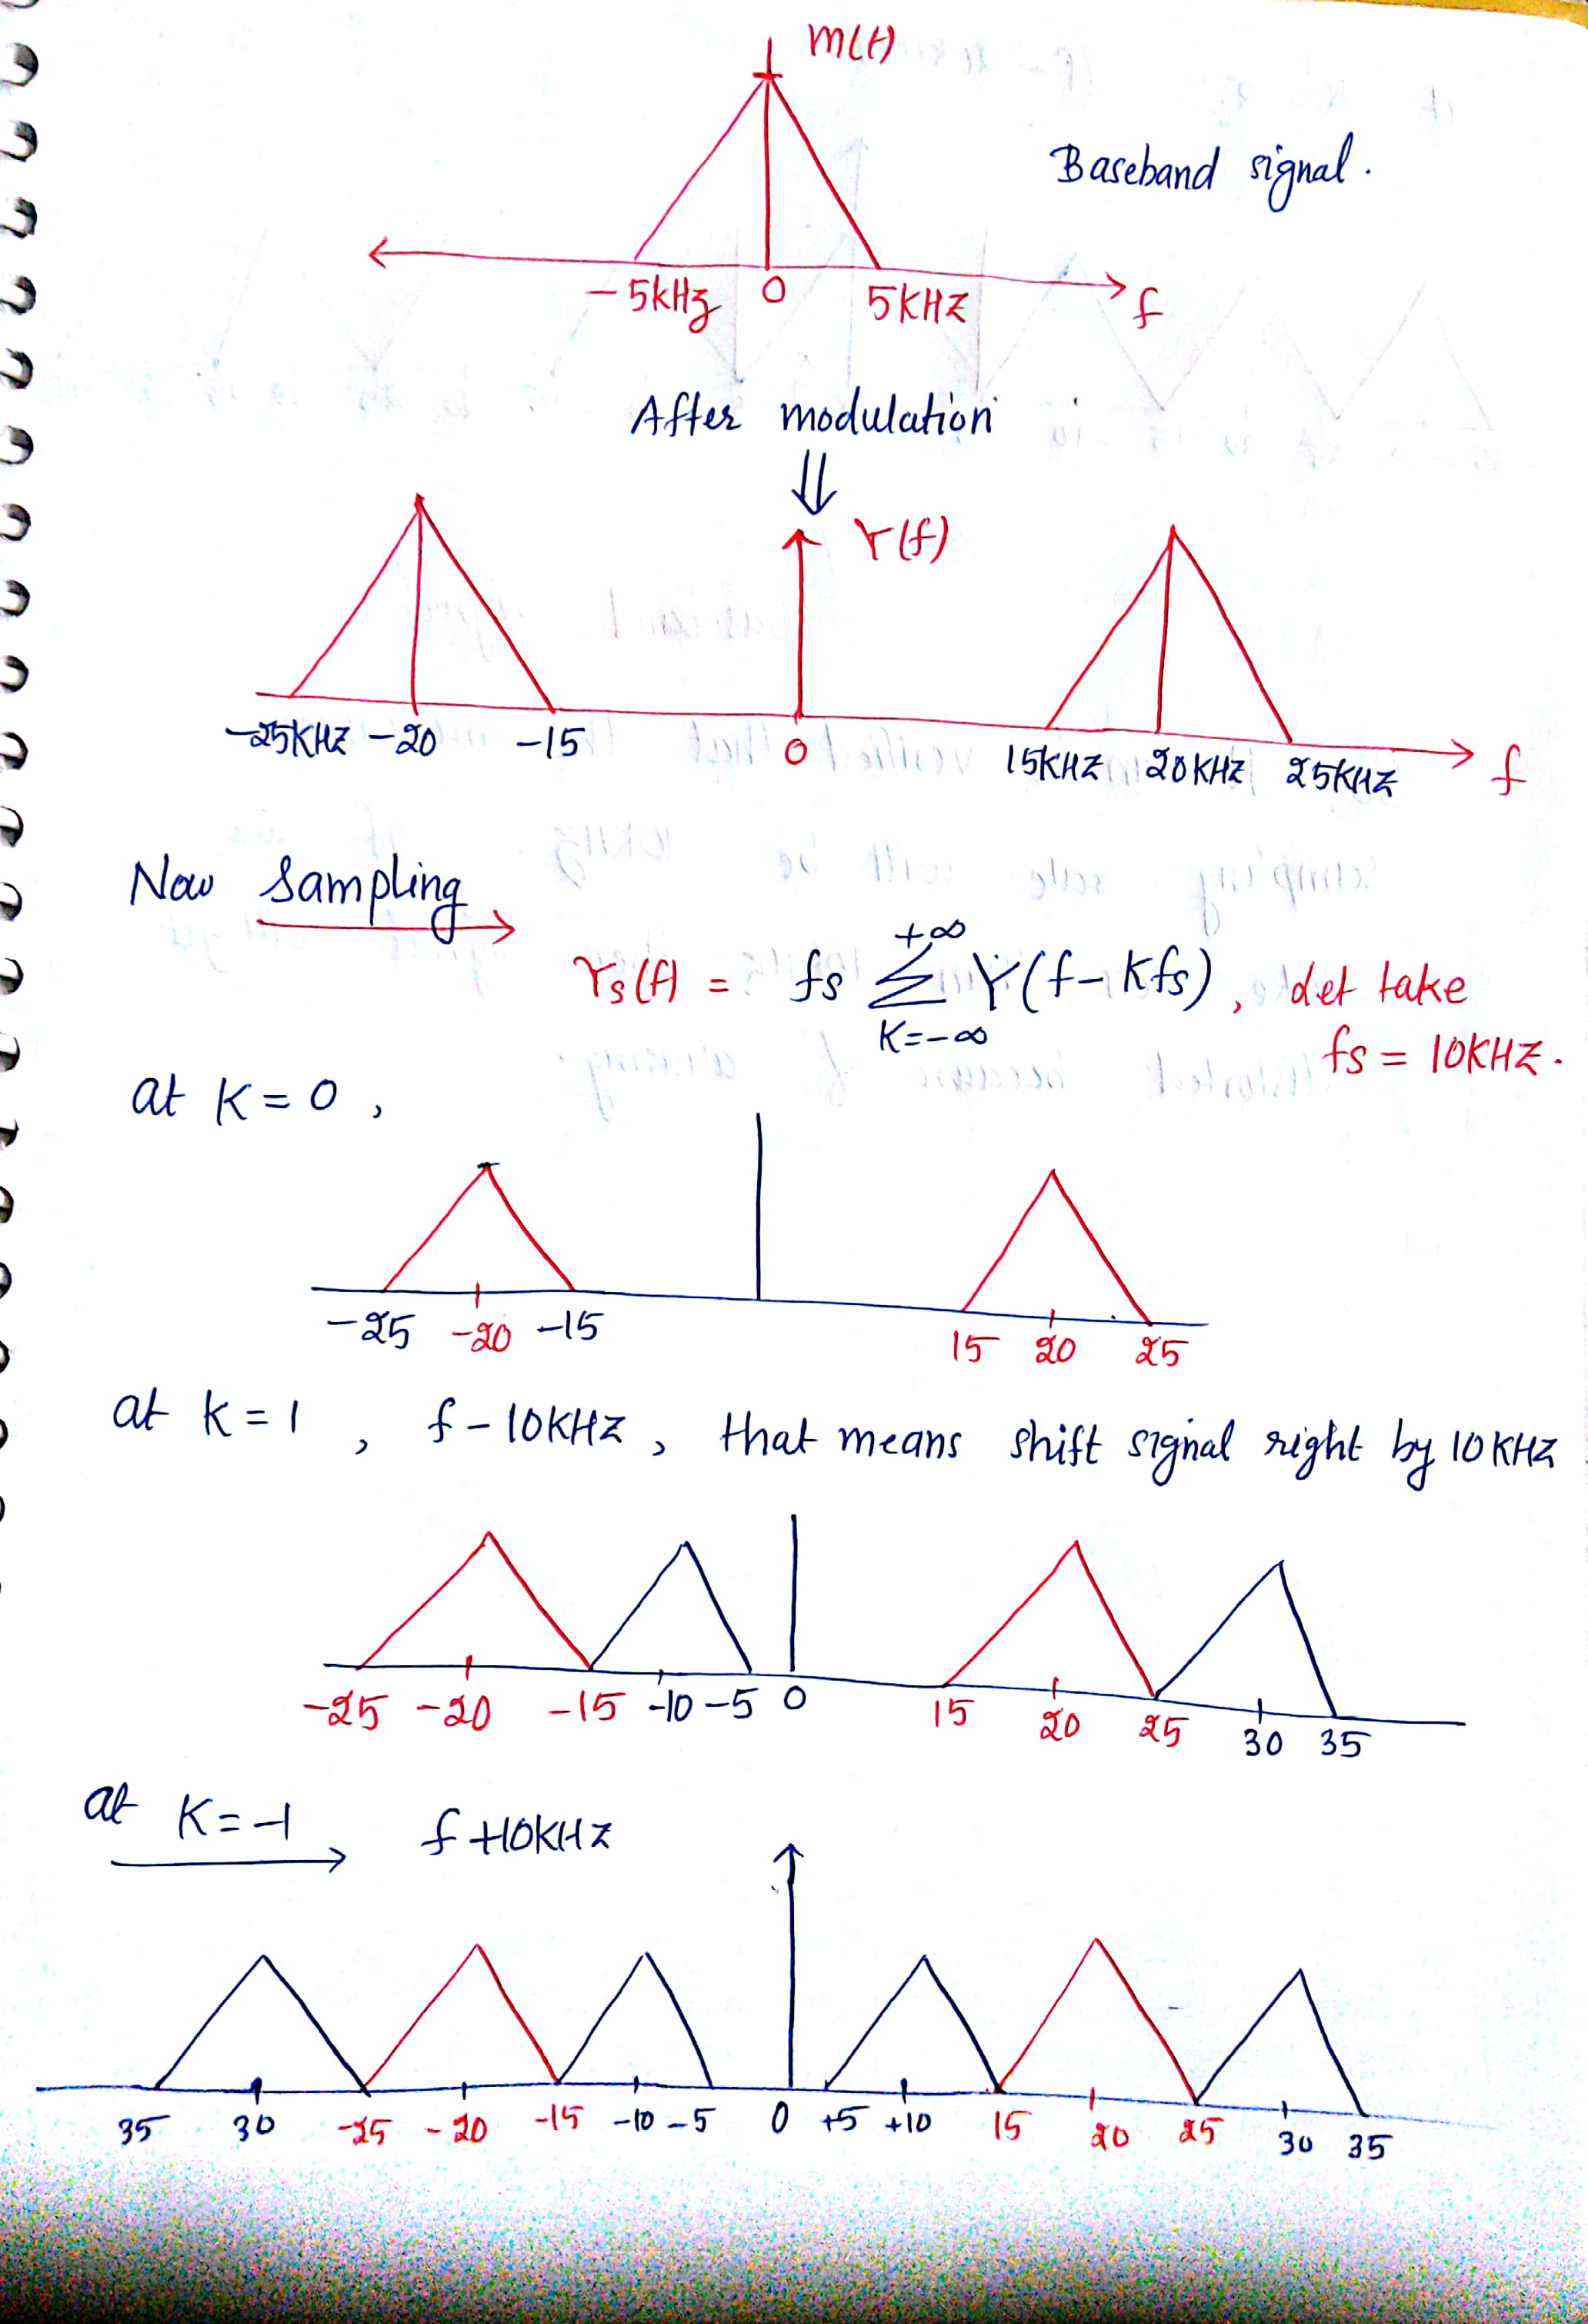 m(t)
Baseband signal.
-5kHz 0 5KHZ f
After modulation
⇓
Y(f)
-25KHZ -20 -15 0 15KHZ 20KHZ 25KHZ f
Now Sampling
Ys(f) = fs Σ Y(f-Kfs), Let take
+∞
K=-∞
fs = 10KHZ.
at K=0,
-25 -20 -15 15 20 25
at k=1, f-10KHZ, that means shift signal right by 10KHZ
-25 -20 -15 -10 -5 0 15 20 25 30 35
at K=-1 f+10KHZ
35 30 -25 -20 -15 -10 -5 0 +5 +10 15 20 25 30 35